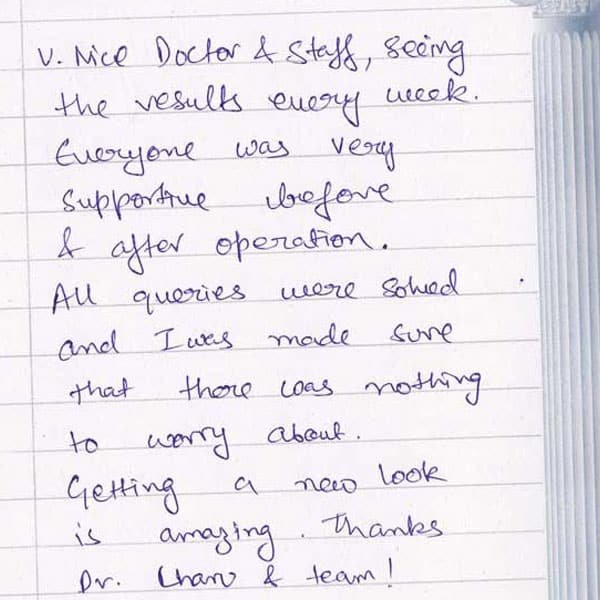 V. Nice Doctor & Staff, seeing
the results every week.
Everyone was very
supportive before
& after operation.
All queries were solved
and I was made sure
that there was nothing
to worry about.
Getting a new look
is amazing. Thanks
Dr. & team!